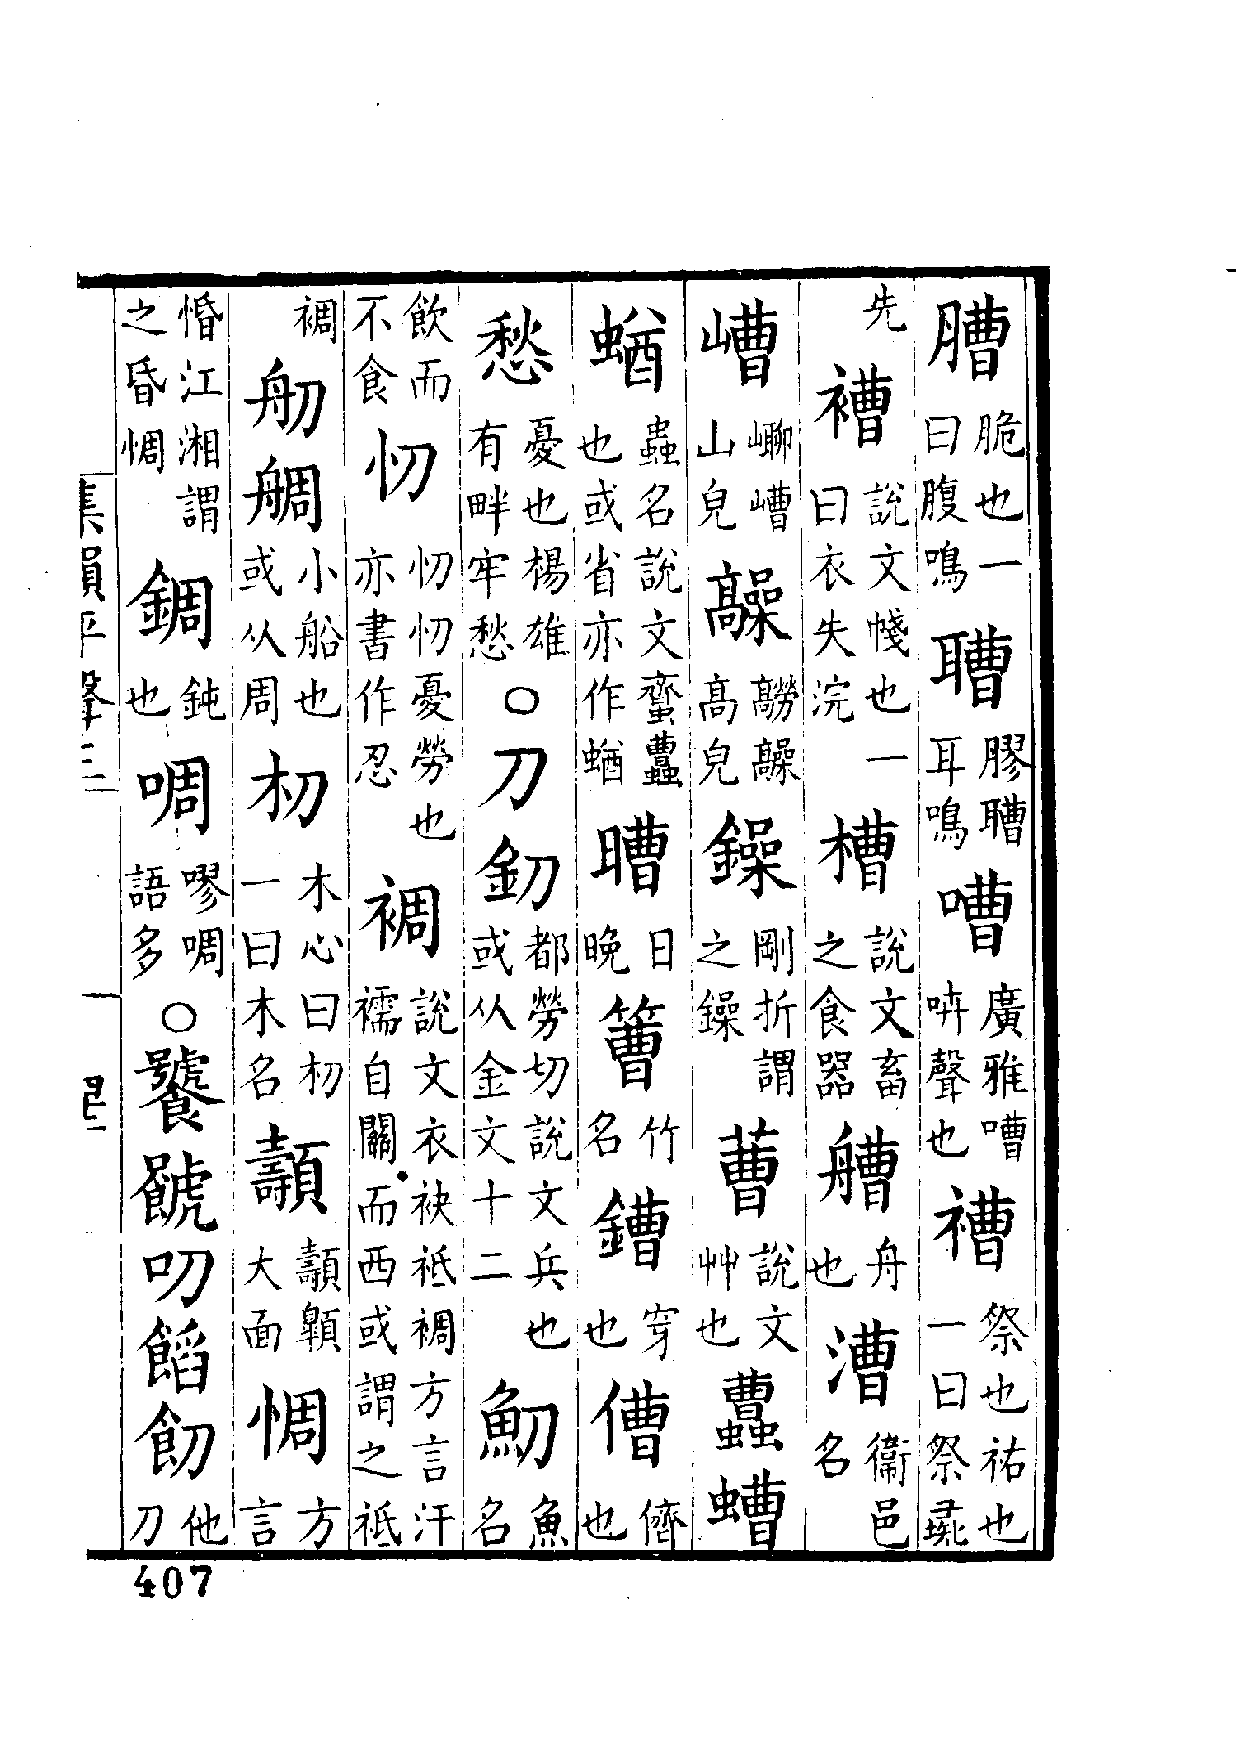 膅脆也一曰腹鳴聹膠聹耳鳴嘈廣雅嘈哢聲也禮祭也祐也一曰祭豕
先襘說文帴也一曰衣失浣槽說文畜之食器艚舟也漕衛邑名
嶆嶚嶆山皃髞髝髞高皃鐰剛折謂之鐰蓸說文艸也蠤螬
蝤蟲名說文齏蠤也或省亦作蝤曹日晚篣竹名鏪穿也傮儕也
愁憂也楊雄有畔牢愁○刀釖都勞切說文兵也或从金文十二魛魚名
飲而不食忉忉忉憂勞也亦書作忍裯說文衣袂祗裯方言汗襦自關而西或謂之祗
裯舠䑬小船也或从周朷木心曰朷一曰木名䫜䫜顤大面惆方言
惛江湘謂之昏惆錭鈍也啁嘐啁語多○饕䬢叨饀飸他刀
集韻平聲三
一
407